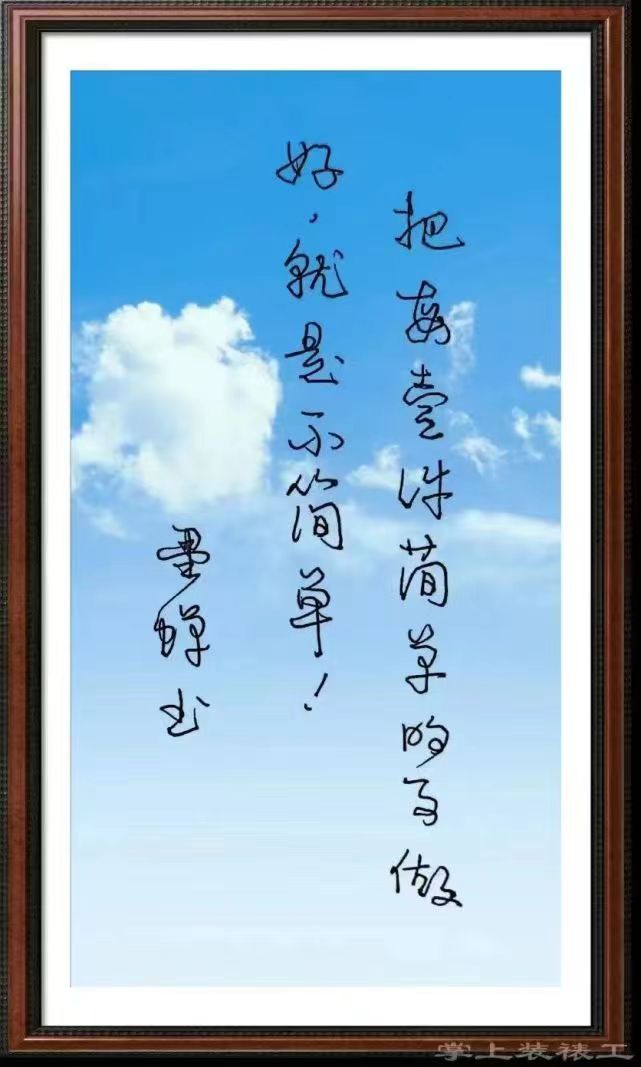 把每壹件简单的事做
好，就是不简单！
墨蝉书
掌上装裱工